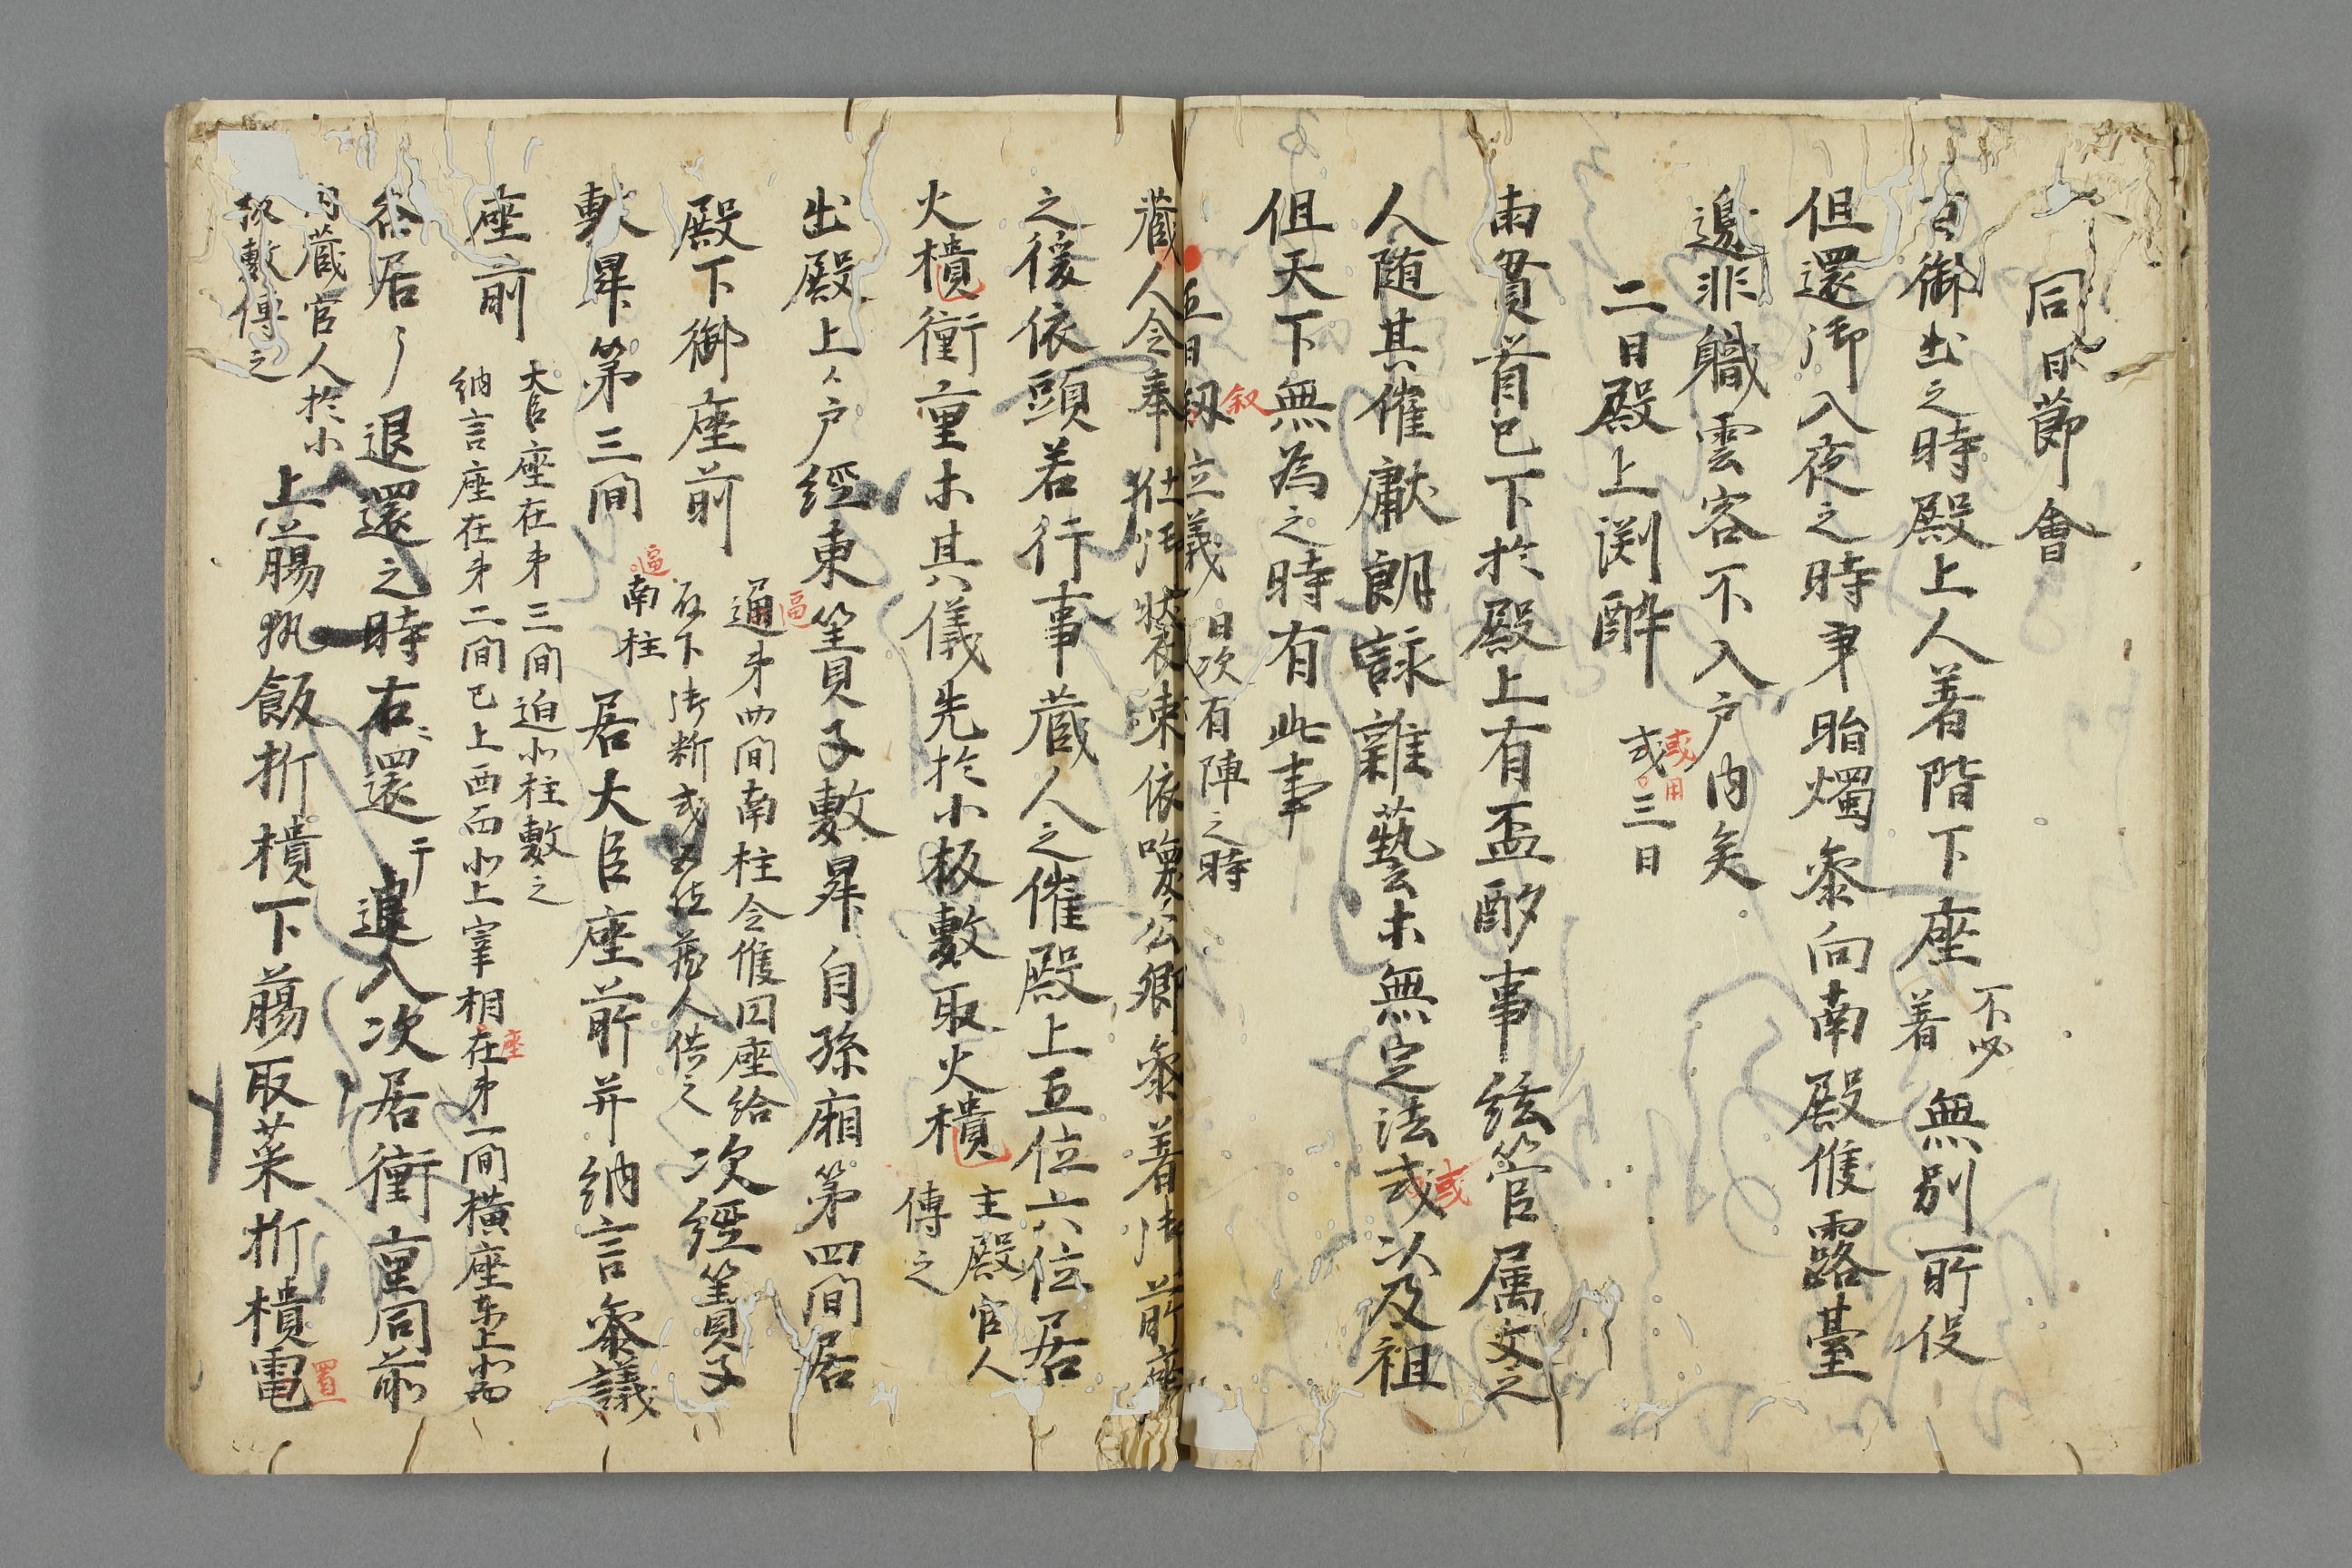 同日節會
御出之時殿上人着階下座不必着無別所役
但還御入夜之時秉脂燭参向南殿儲露臺
邊非職雲客不入戸内矣
二日殿上渕酔 或三日 或用
南貫首已下於殿上有盃酌事絃管属文之
人随其催献朗詠雜藝木無定法或以及祖 或
但天下無為之時有此事
五日叙位議 日次有陣之時 叙
蔵人令奉仕御装束依喚公卿参着御前座
之後依頭若行事蔵人之催殿上五位六位居
火樻衝重木其儀先於小板敷取火樻 主殿官人傳之
出殿上々戸經東簀子敷昇自孫廂第四間居
殿下御座前 逼
通第四間南柱令儲円座給
殿下御料或五位蔵人供之 次經簀子
敷昇第三間 逼南柱 居大臣座前并納言参議
座前 大臣座在第三間迫北柱敷之
納言座在第二間已上西面北上宰相在第一間横座東上北面 座
各居了退還之時右廻還于進入次居衝重同前
内蔵官人於小
板敷傳之 上﨟執飯折樻下﨟取菜折樻電 置